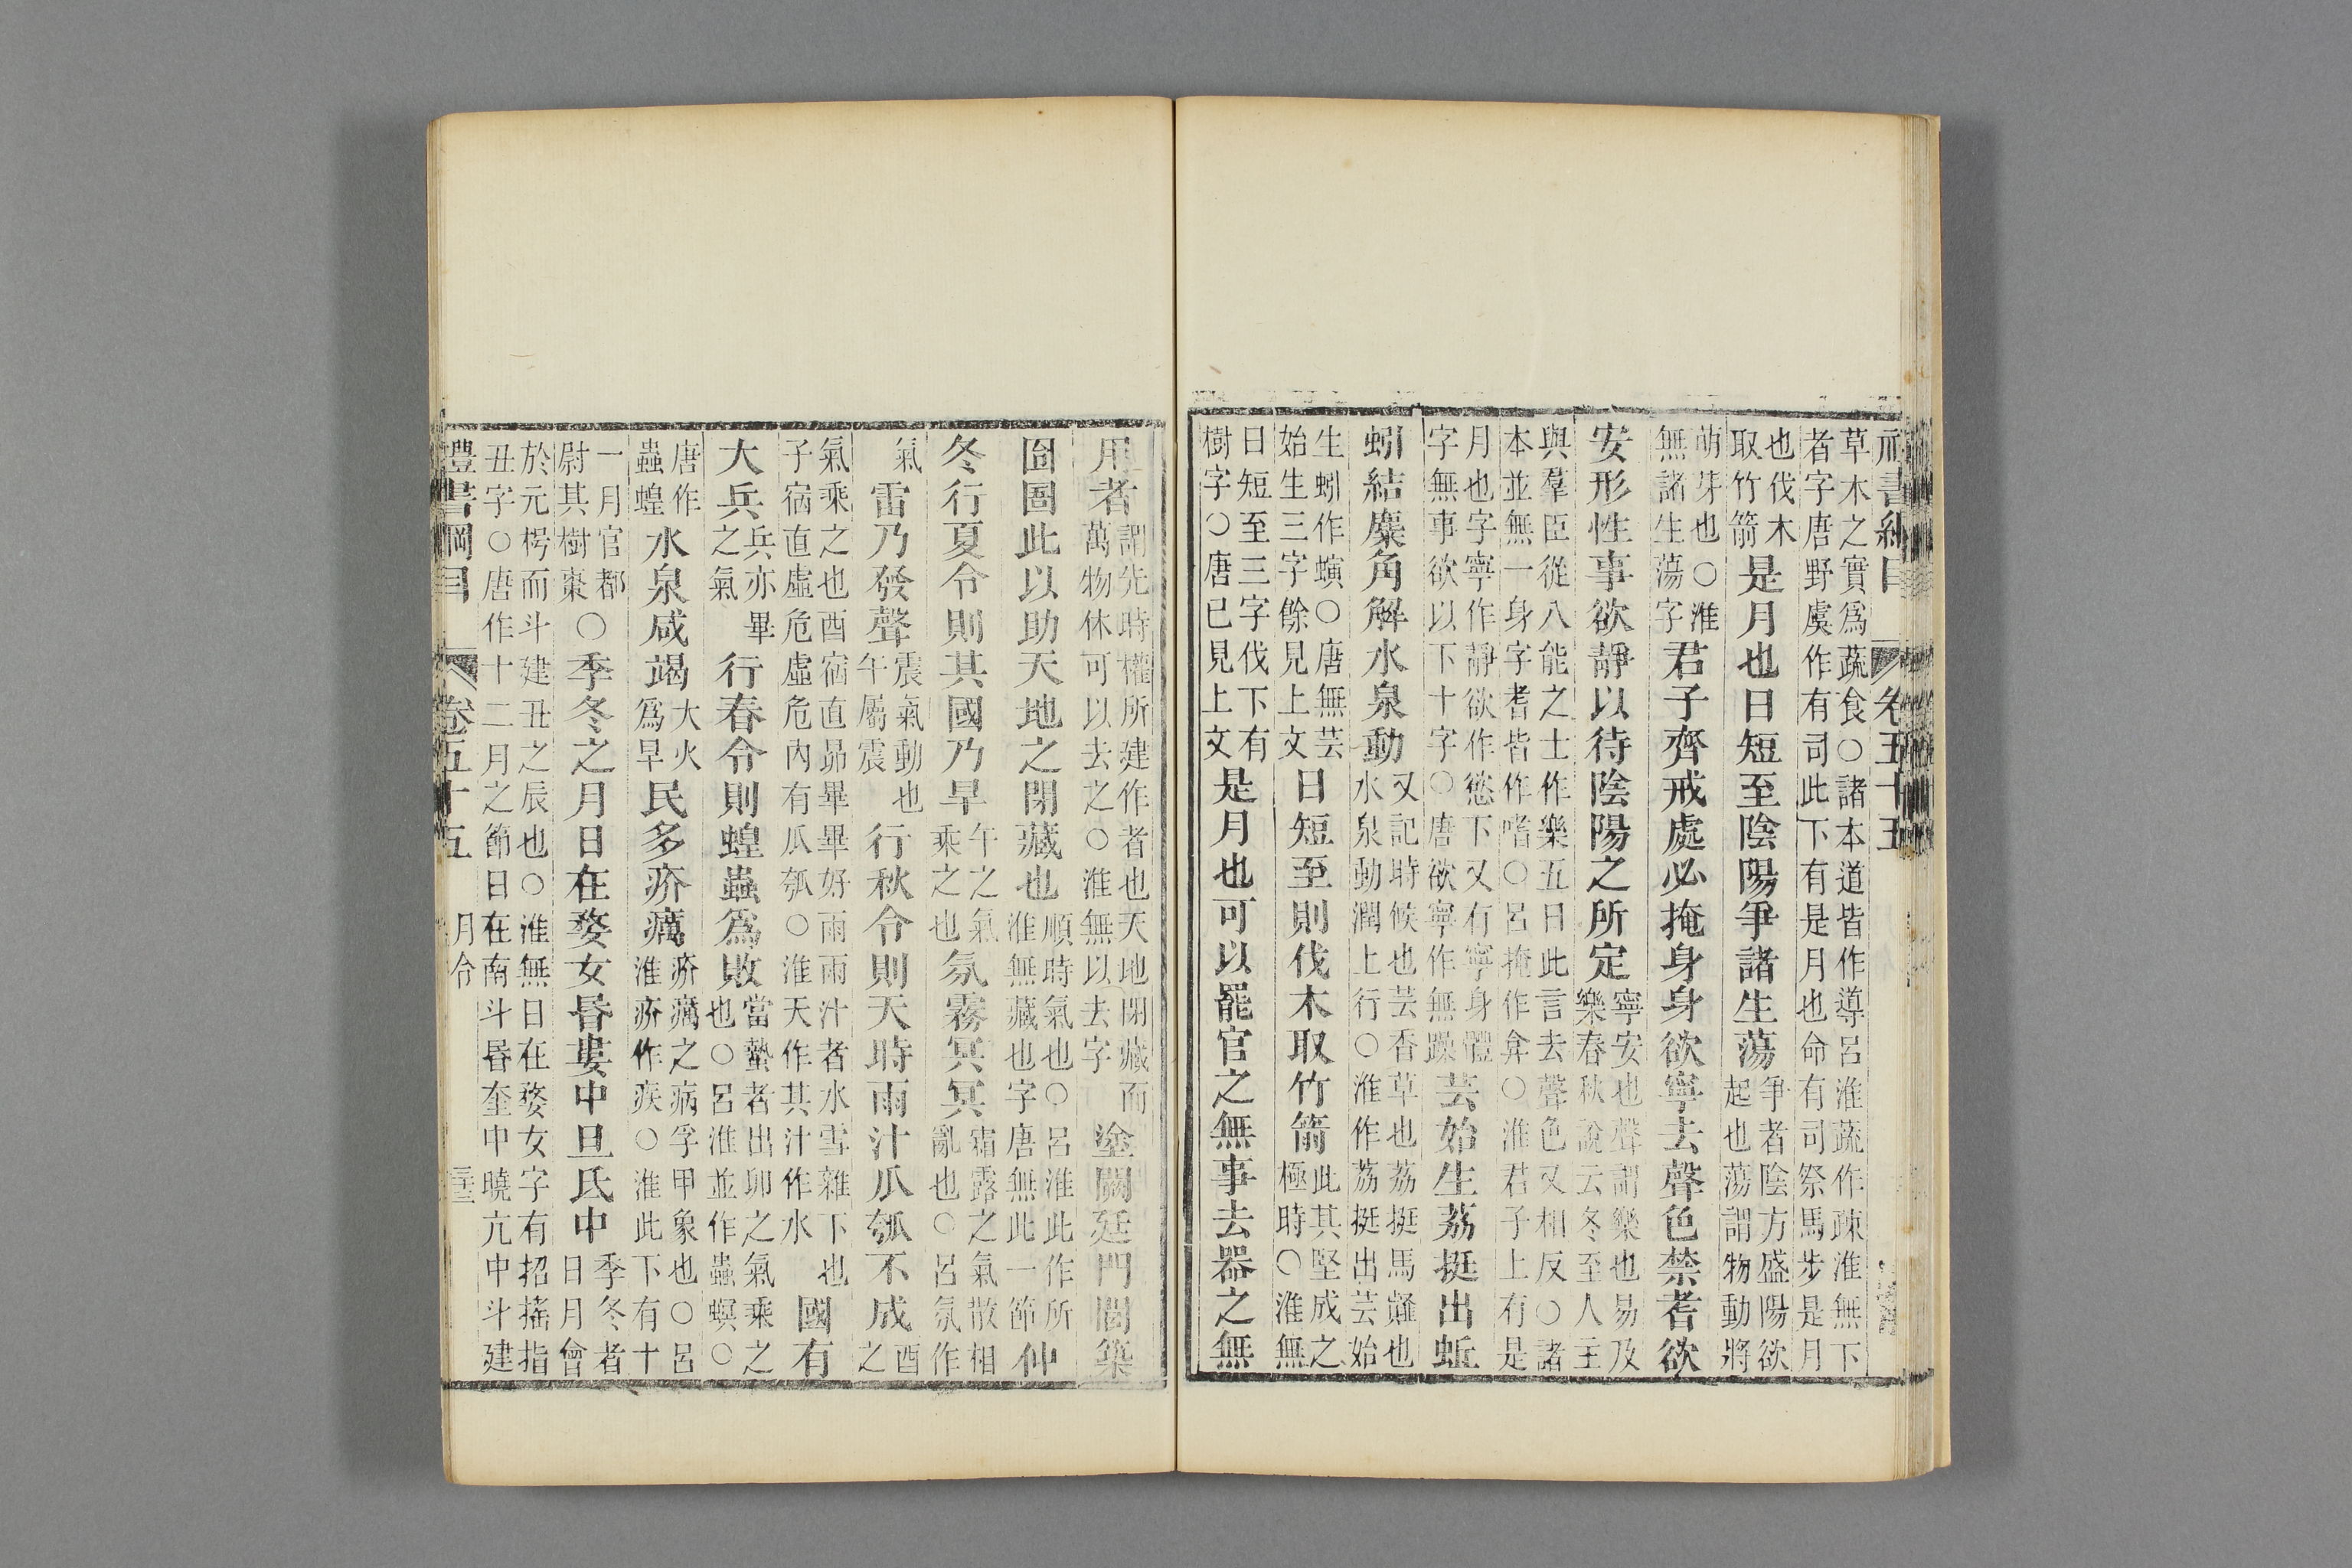 禮書綱目 卷五十五
草木之實爲蔬食○諸本道皆作導呂淮蔬作疎淮無下
者字唐野虞作有司此下有是月也命有司祭馬步是月
也伐木
取竹箭
是月也日短至陰陽爭諸生蕩
爭者陰方盛陽欲
起也蕩謂物動將
萌芽也○淮
無諸生蕩字
君子齊戒處必掩身身欲寧去聲色禁耆欲
安形性事欲靜以待陰陽之所定
寧安也聲謂樂也易及
樂春秋說云冬至人主
與羣臣從八能之士作樂五日此言去聲色又相反○諸
本並無一身字耆皆作嗜○呂掩作弇○淮君子上有是
月也字寧作靜欲作慾下又有寧身體
字無事欲以下十字○唐欲寧作無躁
芸始生荔挺出蚯
蚓結麋角解水泉動
又記時候也芸香草也荔挺馬䪥也
水泉動潤上行○淮作荔挺出芸始
生蚓作螾○唐無芸
始生三字餘見上文
日短至則伐木取竹箭
此其堅成之
極時○淮無
日短至三字伐下有
樹字○唐已見上文
是月也可以罷官之無事去器之無
用者
謂先時權所建作者也天地閉藏而
萬物休可以去之○淮無以去字
塗闕廷門閭築
囹圄此以助天地之閉藏也
順時氣也○呂淮此作所
淮無藏也字唐無此一節
仲
冬行夏令則其國乃旱
午之氣
乘之也
氛霧冥冥
霜露之氣散相
亂也○呂氛作
氣
雷乃發聲
震氣動也
午屬震
行秋令則天時雨汁瓜瓠不成
酉
之
氣乘之也酉宿直昴畢畢好雨雨汁者水雪雜下也
子宿直虛危虛危內有瓜瓠○淮天作其汁作水
國有
大兵
兵亦畢
之氣
行春令則蝗蟲爲敗
當蟄者出卯之氣乘之
也○呂淮並作蟲螟○
唐作
蟲蝗
水泉咸竭
大火
爲旱
民多疥癘
疥癘之病孚甲象也○呂
淮疥作疾○淮此下有十
一月官都
尉其樹棗
○季冬之月日在婺女昏婁中旦氐中
季冬者
日月會
於元枵而斗建丑之辰也○淮無日在婺女字有招搖指
丑字○唐作十二月之節日在南斗昏奎中曉亢中斗建
禮書綱目 卷五十五 月令